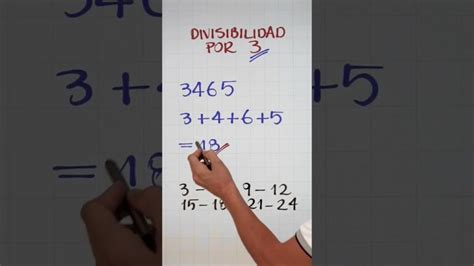 DIVISIBILIDAD
POR 3
3465
3+4+6+5
=18
3 - 9 - 12
15-18-21-24